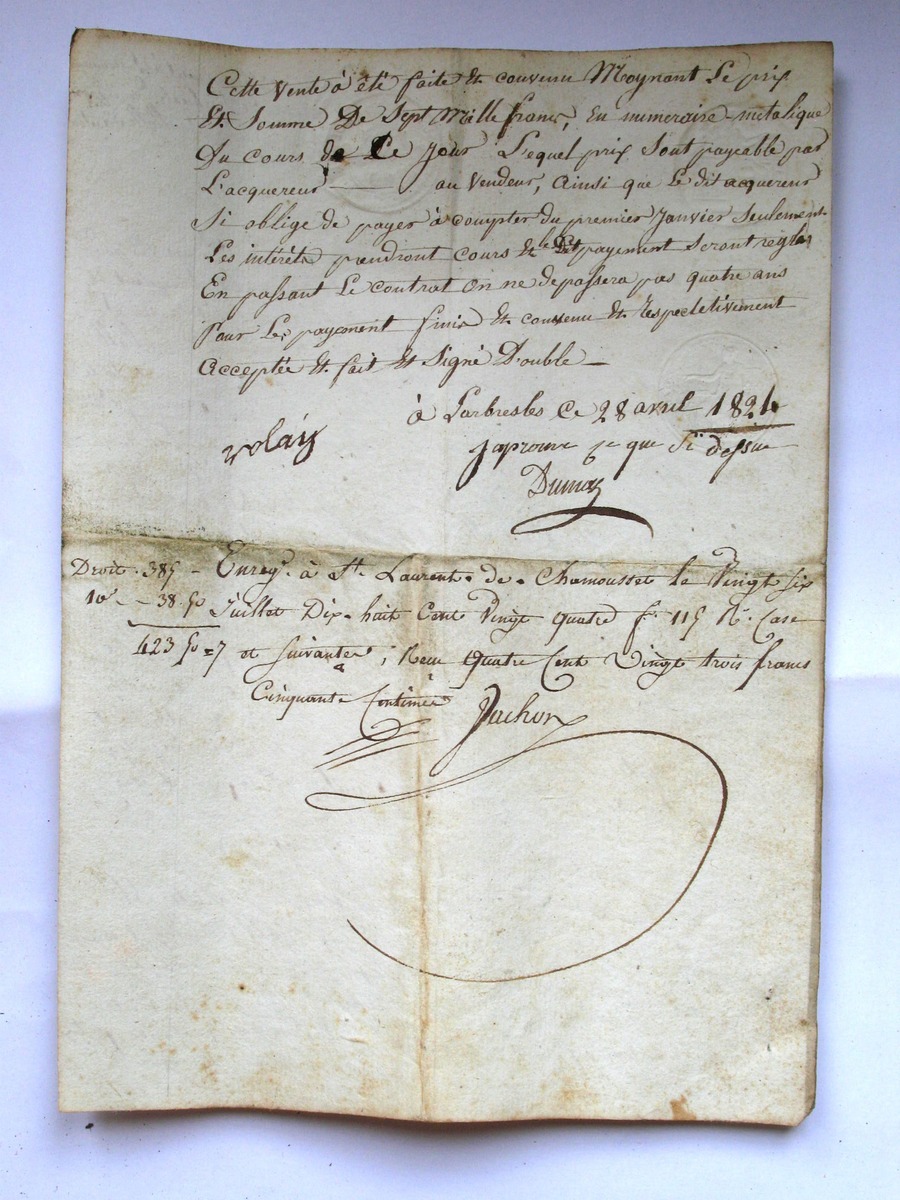 Cette vente à été faite Et convenu Moynant Le prix
Et Somme De Sept Mille francs, En numeraire metalique
Du cours de Ce Jour. Lequel prix Sont payeable par
L'acquereur —— au Vendeur, ainsi que Le dit acquereur
Si oblige de payer à compter du premier Janvier Seulement
Les intérêts prendront cours & le payement Seront réglés
En passant Le contrat On ne depassera pas quatre ans
Pour Les payement finis Et convenu Et Respectivement
Acceptée Et fait Et Signé Double —
à Larbresles Ce 28 avril 1824
rolay
japrouve se que Si dessue
Dumas
Droit. 385 – Enregt. à St. Laurent-de-Chamousset le Vingt Six
10e. – 38.50 Juillet Dix-huit Cent Vingt quatre f° 115 Rº. Case
423 50 = 7 et Suivantes; Reçu quatre Cent Vingt trois francs
Cinquante Centimes
Jachon